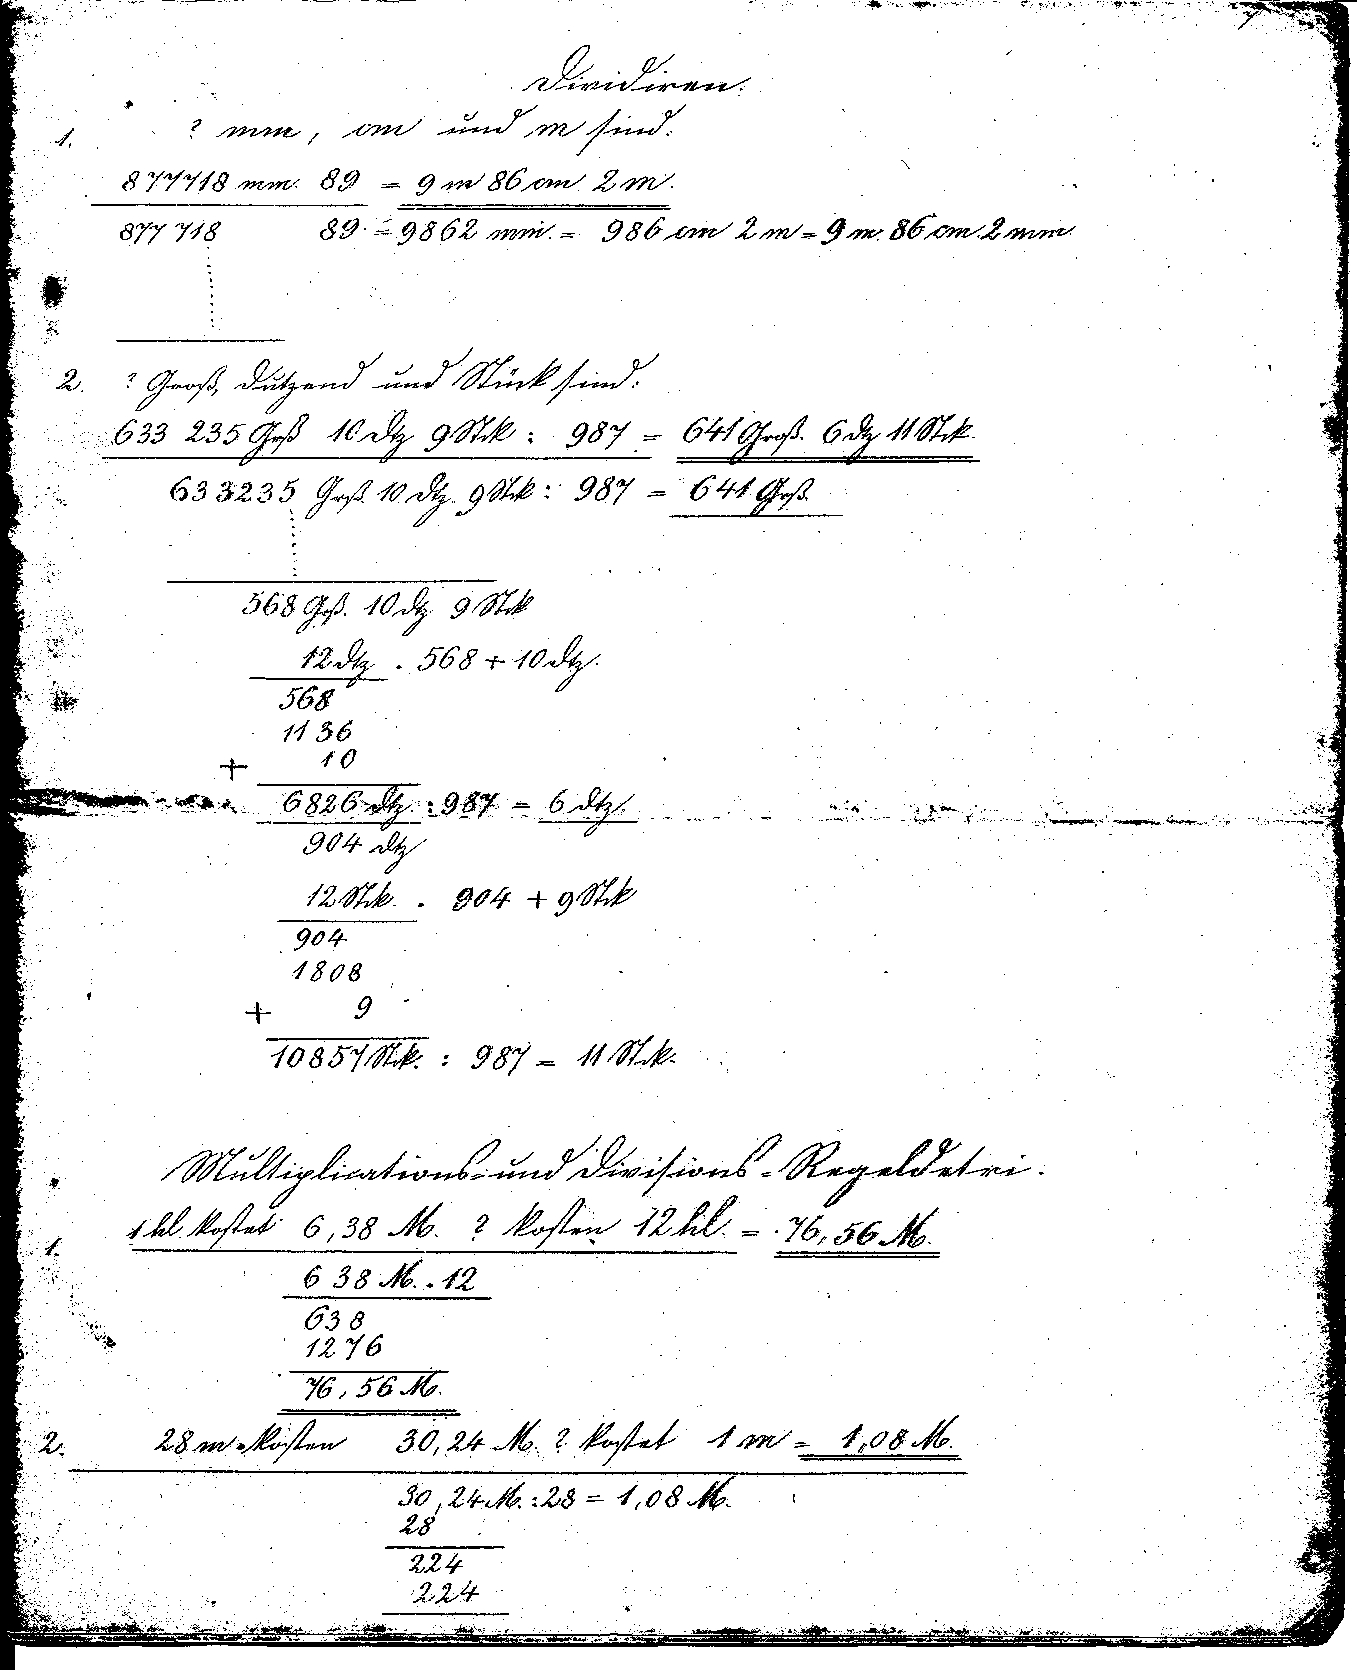 Dividiren.
1. ? mm, cm und m sind:
877718 mm. 89 = 9 m 86 cm 2 m.
877 718 89 = 9862 mm. = 986 cm 2 m = 9 m. 86 cm. 2 mm
2. ? Groß, Dutzend und Stück sind:
633 235 Grß 10 Dtz 9 Stck : 987 = 641 Groß. 6 Dtz 11 Stck.
633235 Grß. 10 Dtz. 9 Stck : 987 = 641 Grß.
568 Grß. 10 Dtz 9 Stck
12 Dtz . 568 + 10 Dtz.
568
1136
+ 10
6826 Dtz : 987 = 6 Dtz.
904 Dtz
12 Stck. . 904 + 9 Stck
904
1808
+ 9
10857 Stck. : 987 = 11 Stck.
Multiplications- und Divisions-Regeldetri.
1. 1 hl kostet 6,38 M. ? kosten 12 hl. = 76,56 M.
6 38 M. . 12
638
1276
76,56 M.
2. 28 m kosten 30,24 M. ? kostet 1 m = 1,08 M.
30,24 M. : 28 = 1,08 M.
28
224
224